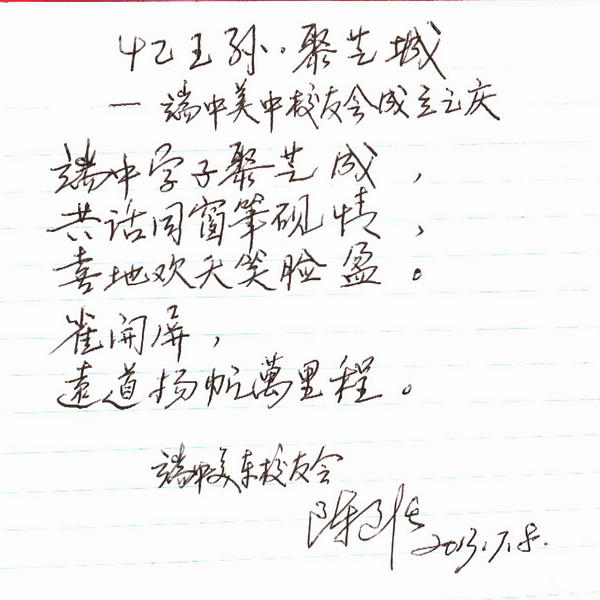 忆王孙·聚芝城
—端中美中校友会成立之庆
端中学子聚芝城，
共话同窗笔砚情，
喜地欢天笑脸盈。
雀开屏，
远道扬帆萬里程。
端中美东校友会
陈 2013.7.8.